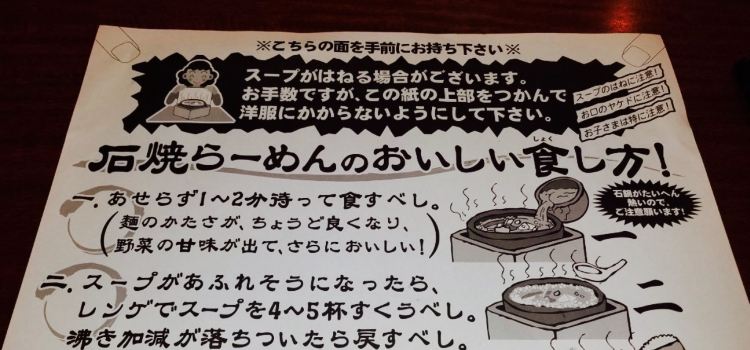 ※こちらの面を手前にお持ち下さい※
スープがはねる場合がございます。
お手数ですが、この紙の上部をつかんで
洋服にかからないようにして下さい。
スープのはねに注意!
お口のヤケドに注意!
お子さまは特に注意!
石焼らーめんのおいしい食し方!
しょく
一. あせらず1〜2分待って食すべし。
(麺のかたさが、ちょうど良くなり、
野菜の甘味が出て、さらにおいしい!)
石鍋がたいへん
熱いので、
ご注意願います!
一
二. スープがあふれそうになったら、
レンゲでスープを4〜5杯すくうべし。
沸き加減が落ちついたら戻すべし。
二